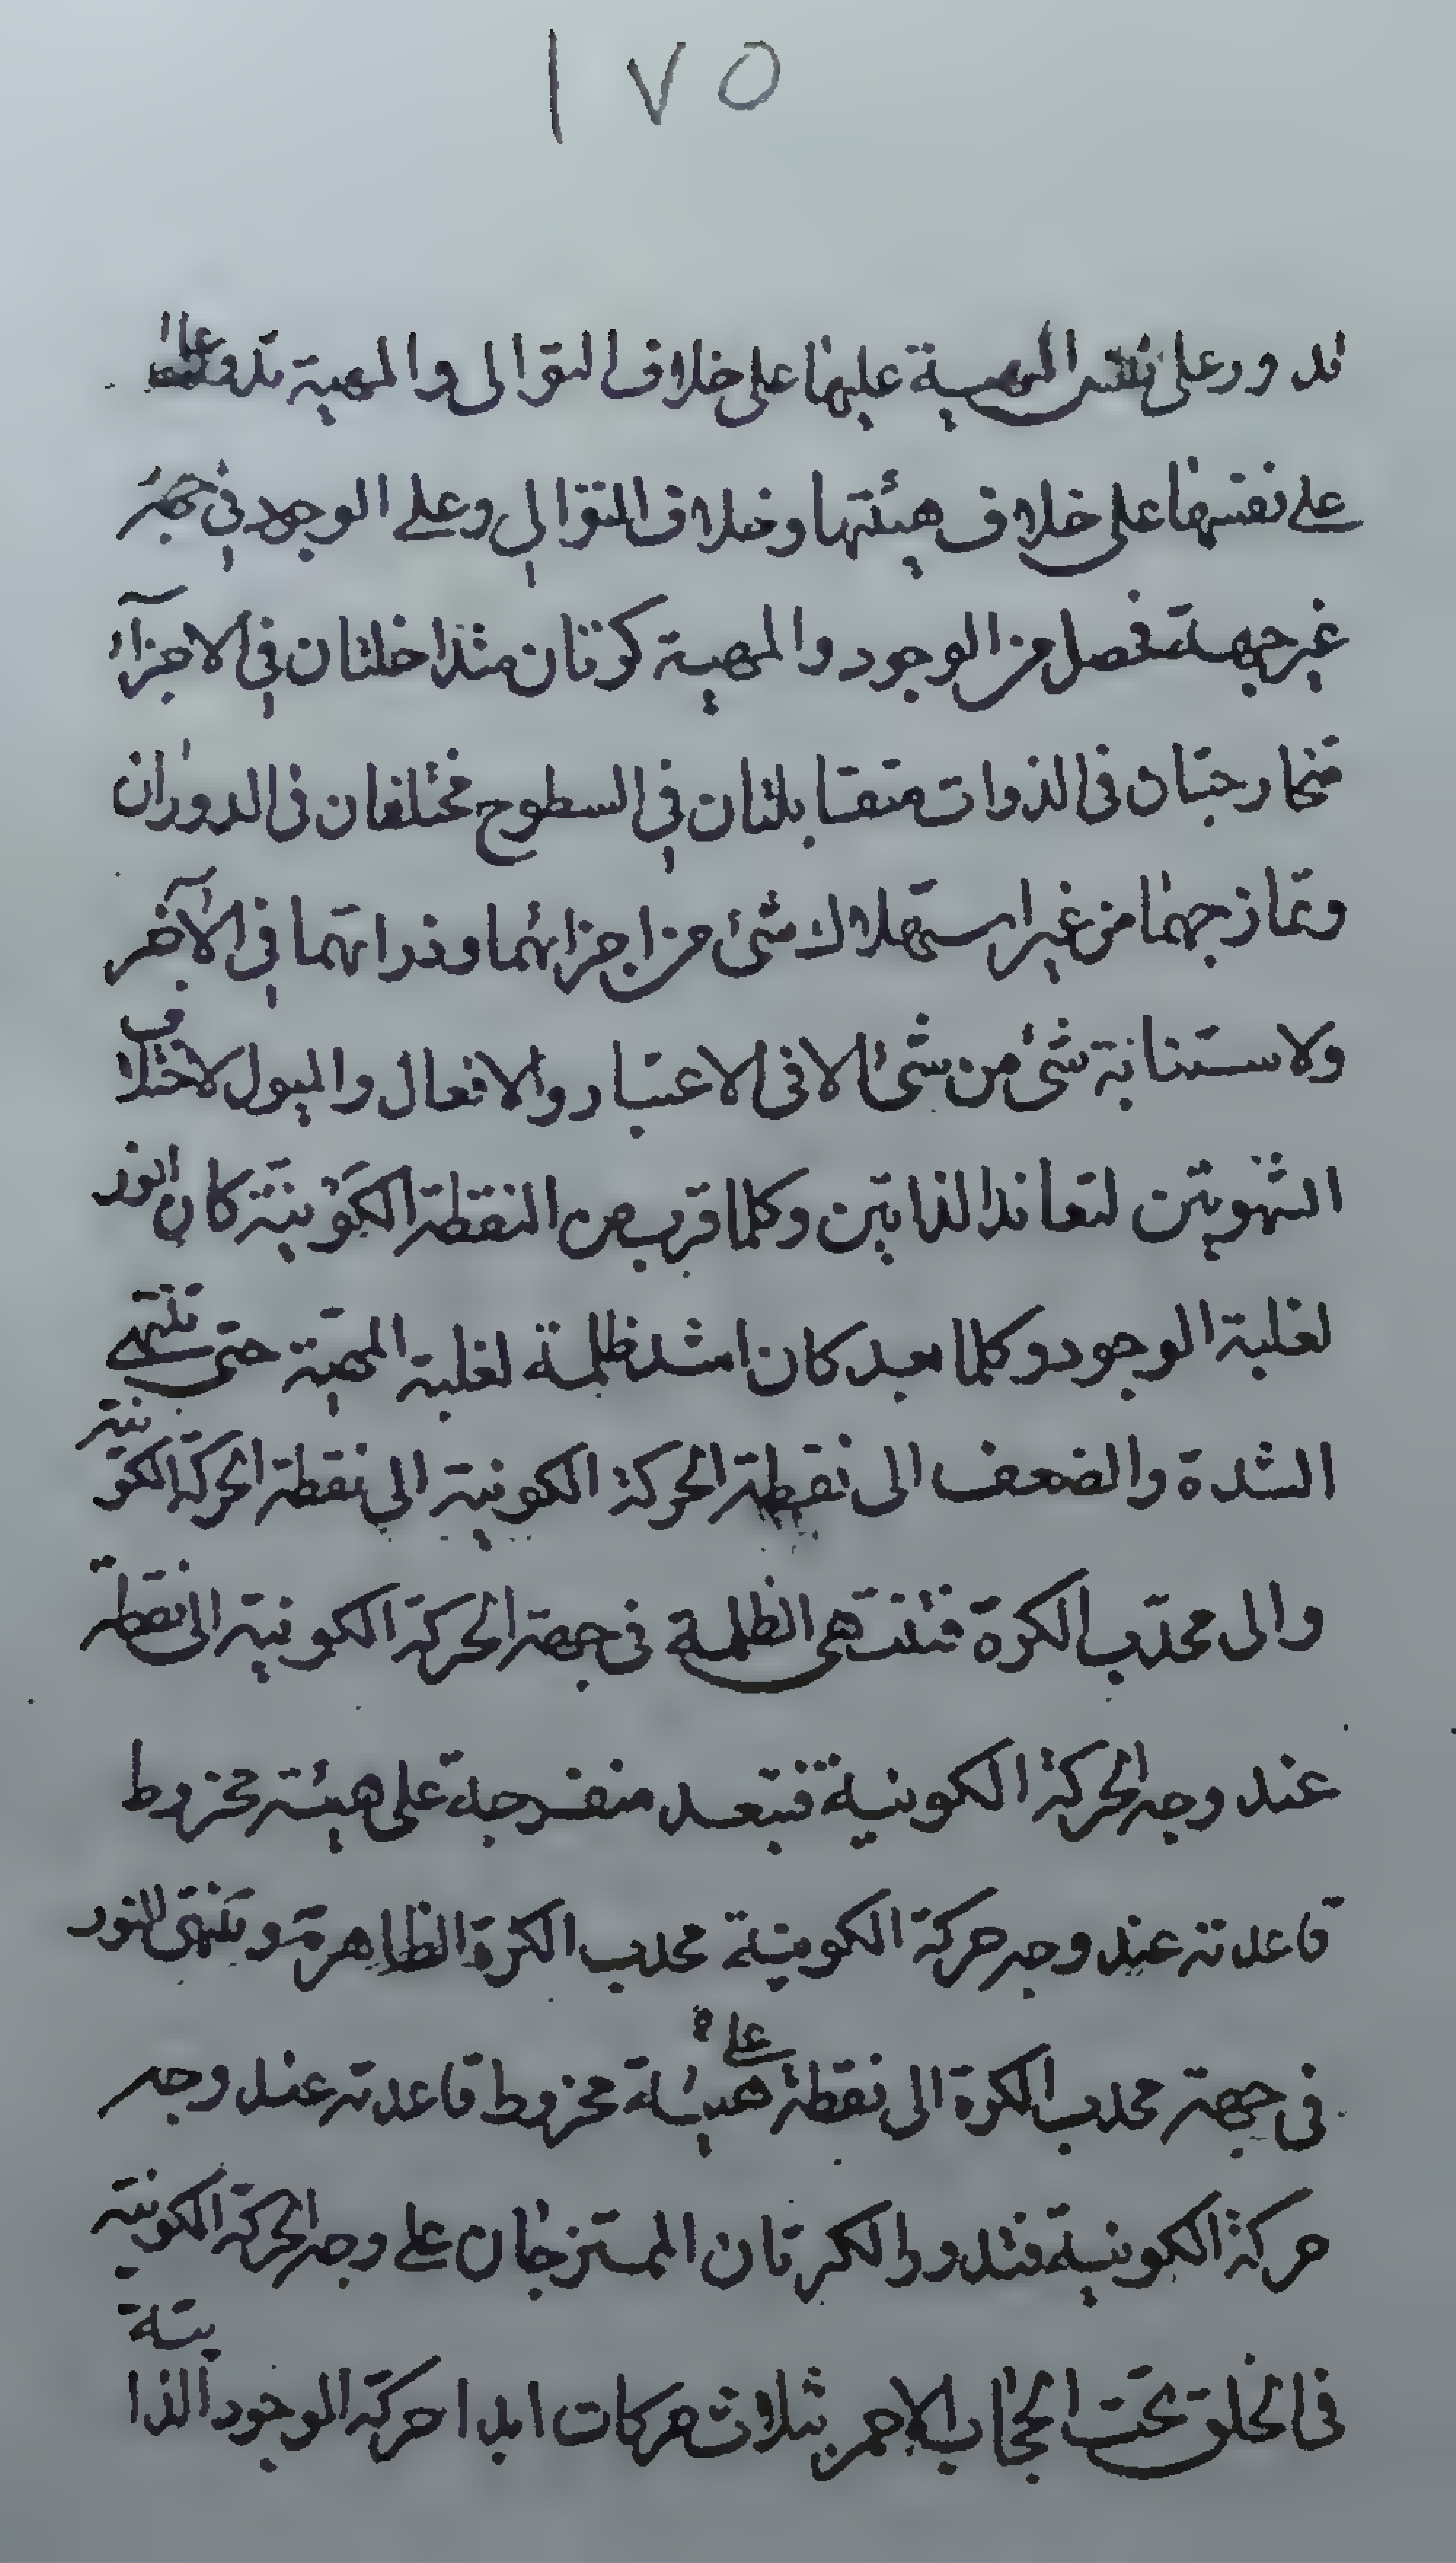 ١٧٥
تدور على نفس المهية عليها على خلاف التوالى والمهية تدور عليه
على نفسها على خلاف هيئتها وخلاف التوالي وعلى الوجود في جهة
غير جهته فحصل من الوجود والمهية كرتان متداخلتان في الاجزاء
متخارجتان فى الذوات متقابلتان في السطوح مختلفتان فى الدوران
وتمازجهما من غير استهلاك شئ من اجزائهما وذراتهما في الآخر
ولا ستنانة شئ من شئ الا فى الاعتبار والافعال والميول لاختلاف
الشهويتين لتعاند الذاتين وكلما قرب من النقطة الكونية كان انور
لغلبة الوجود وكلما بعد كان اشد ظلمة لغلبة المهية حتى تنتهي
الشدة والضعف الى نقطة الحركة الكونية الى نقطة الحركة الكونية
والى محدب الكرة فتنتهى الظلمة فى جهة الحركة الكونية الى نقطة
عند وجه الحركة الكونية فتبعد منفرجة على هيئة مخروط
قاعدته عند وجه حركة الكونية محدب الكرة الظاهرة وينتهى النور
فى جهة محدب الكرة الى نقطة على هيئة مخروط قاعدته عند وجه
حركة الكونية فتدور الكرتان الممتزجتان على وجه الحركة الكونية
فى الخلق تحت الحجاب الاحمر بثلاث حركات ابدا حركة الوجود الذاتية